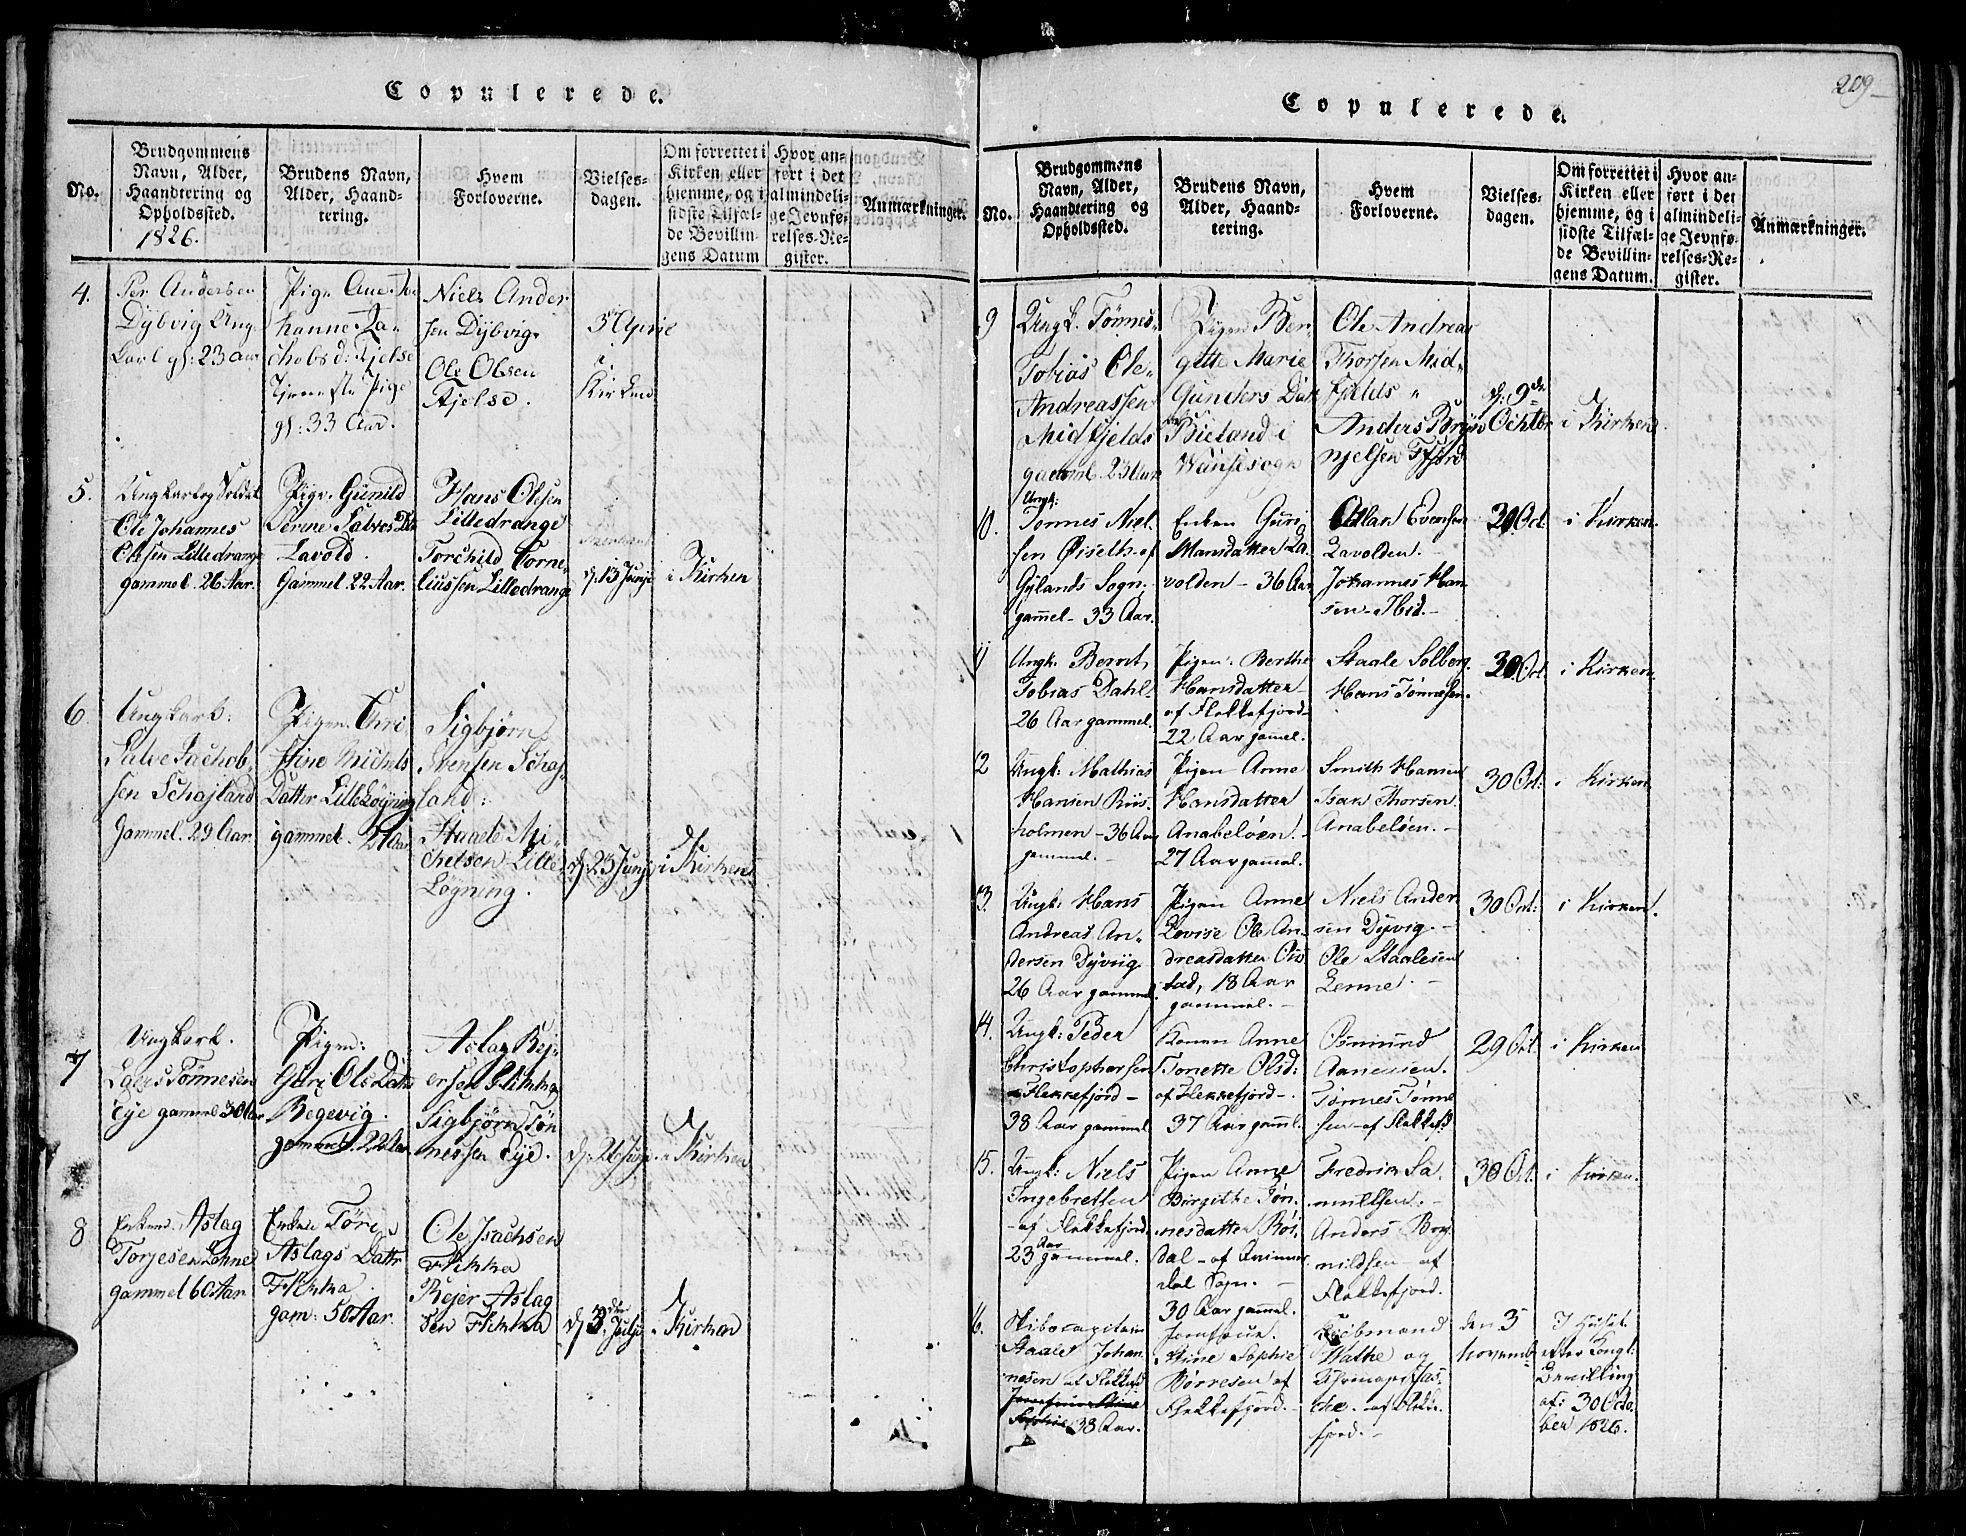 Copulerede.
No.
Brudgommens
Navn, Alder,
Haandtering og
Opholdssted.
1826.
Brudens Navn,
Alder, Haand-
tering.
Hvem
Forloverne.
Vielses-
dagen.
Om forrettet i
Kirken eller
hjemme, og i
sidste Tilfæl-
de Bevillin-
gens Datum
Hvor an-
ført i det
almindeli-
ge Jevnfø-
relses-Re-
gister.
Anmærkninger.
4.
Per Andersen
Dÿbvig Ung
karl gl: 23 aar
Pige Ane Jo
hanne Ja-
chobs d: Fjelse
Tjeneste Pige
gl: 33 Aar.
Niels Ander
sen Dÿbvig
Ole Olsen
Fjelse.
3 April
i
Kirken
5.
Ungkarl og Soldat
Ole Johannes
Olesen Lilledrange
gammel. 26 Aar.
Pige. Gunild
Serine Salves Dr
Lavold.
Gammel. 22 Aar.
Hans Olesen
Lilledrange
Torchild Corne
liussen Lilledrange
d. 13 Junje
i Kirken
6.
Ungkarl:
Salve Jachob-
sen Schajland
Gammel. 29 Aar.
Pigen. Chri
stine Michels
Datter Lille Løgning
gammel. 21 Aar
Sigbjørn
Svensen Schaj
land:
Staale Mi-
chelsen Lille
Løgning.
d. 25 Junje
i Kirken
7
Ungkarl.
Lars Tønnesen
Eye gammel 30 Aar
Pigen:
Guri Ols Datter
Regevig.
gammel. 22 Aar.
Aslag Rej-
ersen Flikka
Sigbjørn Tøn
nessen Eye.
d. 26 Junje
i Kirken
8
Enkem. Aslag
Torjesen Lohne
gammel 60 Aar
Enken Tøre
Aslags Datter
Flikka.
gam: 50 Aar.
Ole Isachsen
Flikka
Rejer Aslag
sen Flikka
d. 3 Julje
i Kirken
209
Copulerede.
No.
Brudgommens
Navn, Alder,
Haandtering og
Opholdssted.
Brudens Navn,
Alder, Haand-
tering.
Hvem
Forloverne.
Vielses-
dagen.
Om forrettet i
Kirken eller
hjemme, og i
sidste Tilfæl-
de Bevillin-
gens Datum.
Hvor an-
ført i det
almindeli-
ge Jevnfø-
relses-Re-
gister.
Anmærkninger.
9
Ungk. Tønnes
Tobias Ole-
Andreassen
Midfjelds
gamml. 23 Aar
Pigen Ber
gitte Marie
Gunders Datr
Bieland i
Vansesogn
Ole Andreas
Thorsen Mid-
fjelds
Anders Bryn
njelsen
d: 9de
Octbr
i Kirken
10.
Ungk:
Tønnes Niel.
sen Øiseth af
Gylands Sogn,
gammel - 33 Aar.
Enken Guri
Hansdatter La
volden - 36 Aar
Atlak Evensen
Lavolden. -
Johannes Han
sen - Ibid. -
30 Oct
i Kirken.
11
Ungk. Bernt
Tobias Dahl.
26 Aar gammel.
Pigen. Berthe
Hansdatter
af Flekkefjord
22 Aar gamel.
Staale Solberg
Hans Tønnesen.
30. Oct.
i Kirken.
12
Ungk: Mathias
Hansen Riis-
holmen - 36 Aar
gammel. -
Pigen Anne
Hansdatter
Anabeløen. -
27 Aar gammel.
Smith Hansen
Isak Thorsen
Anabeløen. -
30 Oct:
i Kirken
13.
Ungk: Hans
Andreas An-
dersen Dyvig
26 Aar gammel.
Pigen Anne
Lovise Ole An-
dreasdatter Os
tad, 18 Aar
gammel. -
Niels Ander
sen Dyvig. -
Ole Staalesen
Lenne. -
30 Oct:
i Kirken.
14.
Ungk: Peder
Christophersen
Flekkefjord -
38 Aar gammel
Konen Anne
Tonette Olsd:
af Flekkefjord -
37 Aar gamml.
Osmund
Aanensen.
Tønnes Tønne
sen - af Flekkefd
29 Oct
i Kirken
15.
Ungk: Niels
Ingebretsen
- af Flekkefjord
23 Aar gammel.
Pigen Anne
Birgithe Tøn-
nesdatter Røi-
dal - af
dal Sogn. -
30 Aar gammel.
Fredrik Sa-
muelsen. -
Anders Bor
nildsen - af
Flekkefjord.
30 Oct.
i Kirken.
16.
Skibscapitain
Staale Johan
nesen af Flekkefd
Jomfrue Stine
Sophie 38 Aar.
Jomfrue.
Stine Sophie
Børresen af
Flekkefjord. -
Kiøbmand
Wathe og
- af Flekke
fjord. -
den 3
Novemb
I Huset
efter Kongl:
Bevilling
af: 30 Octo
ber 1826.